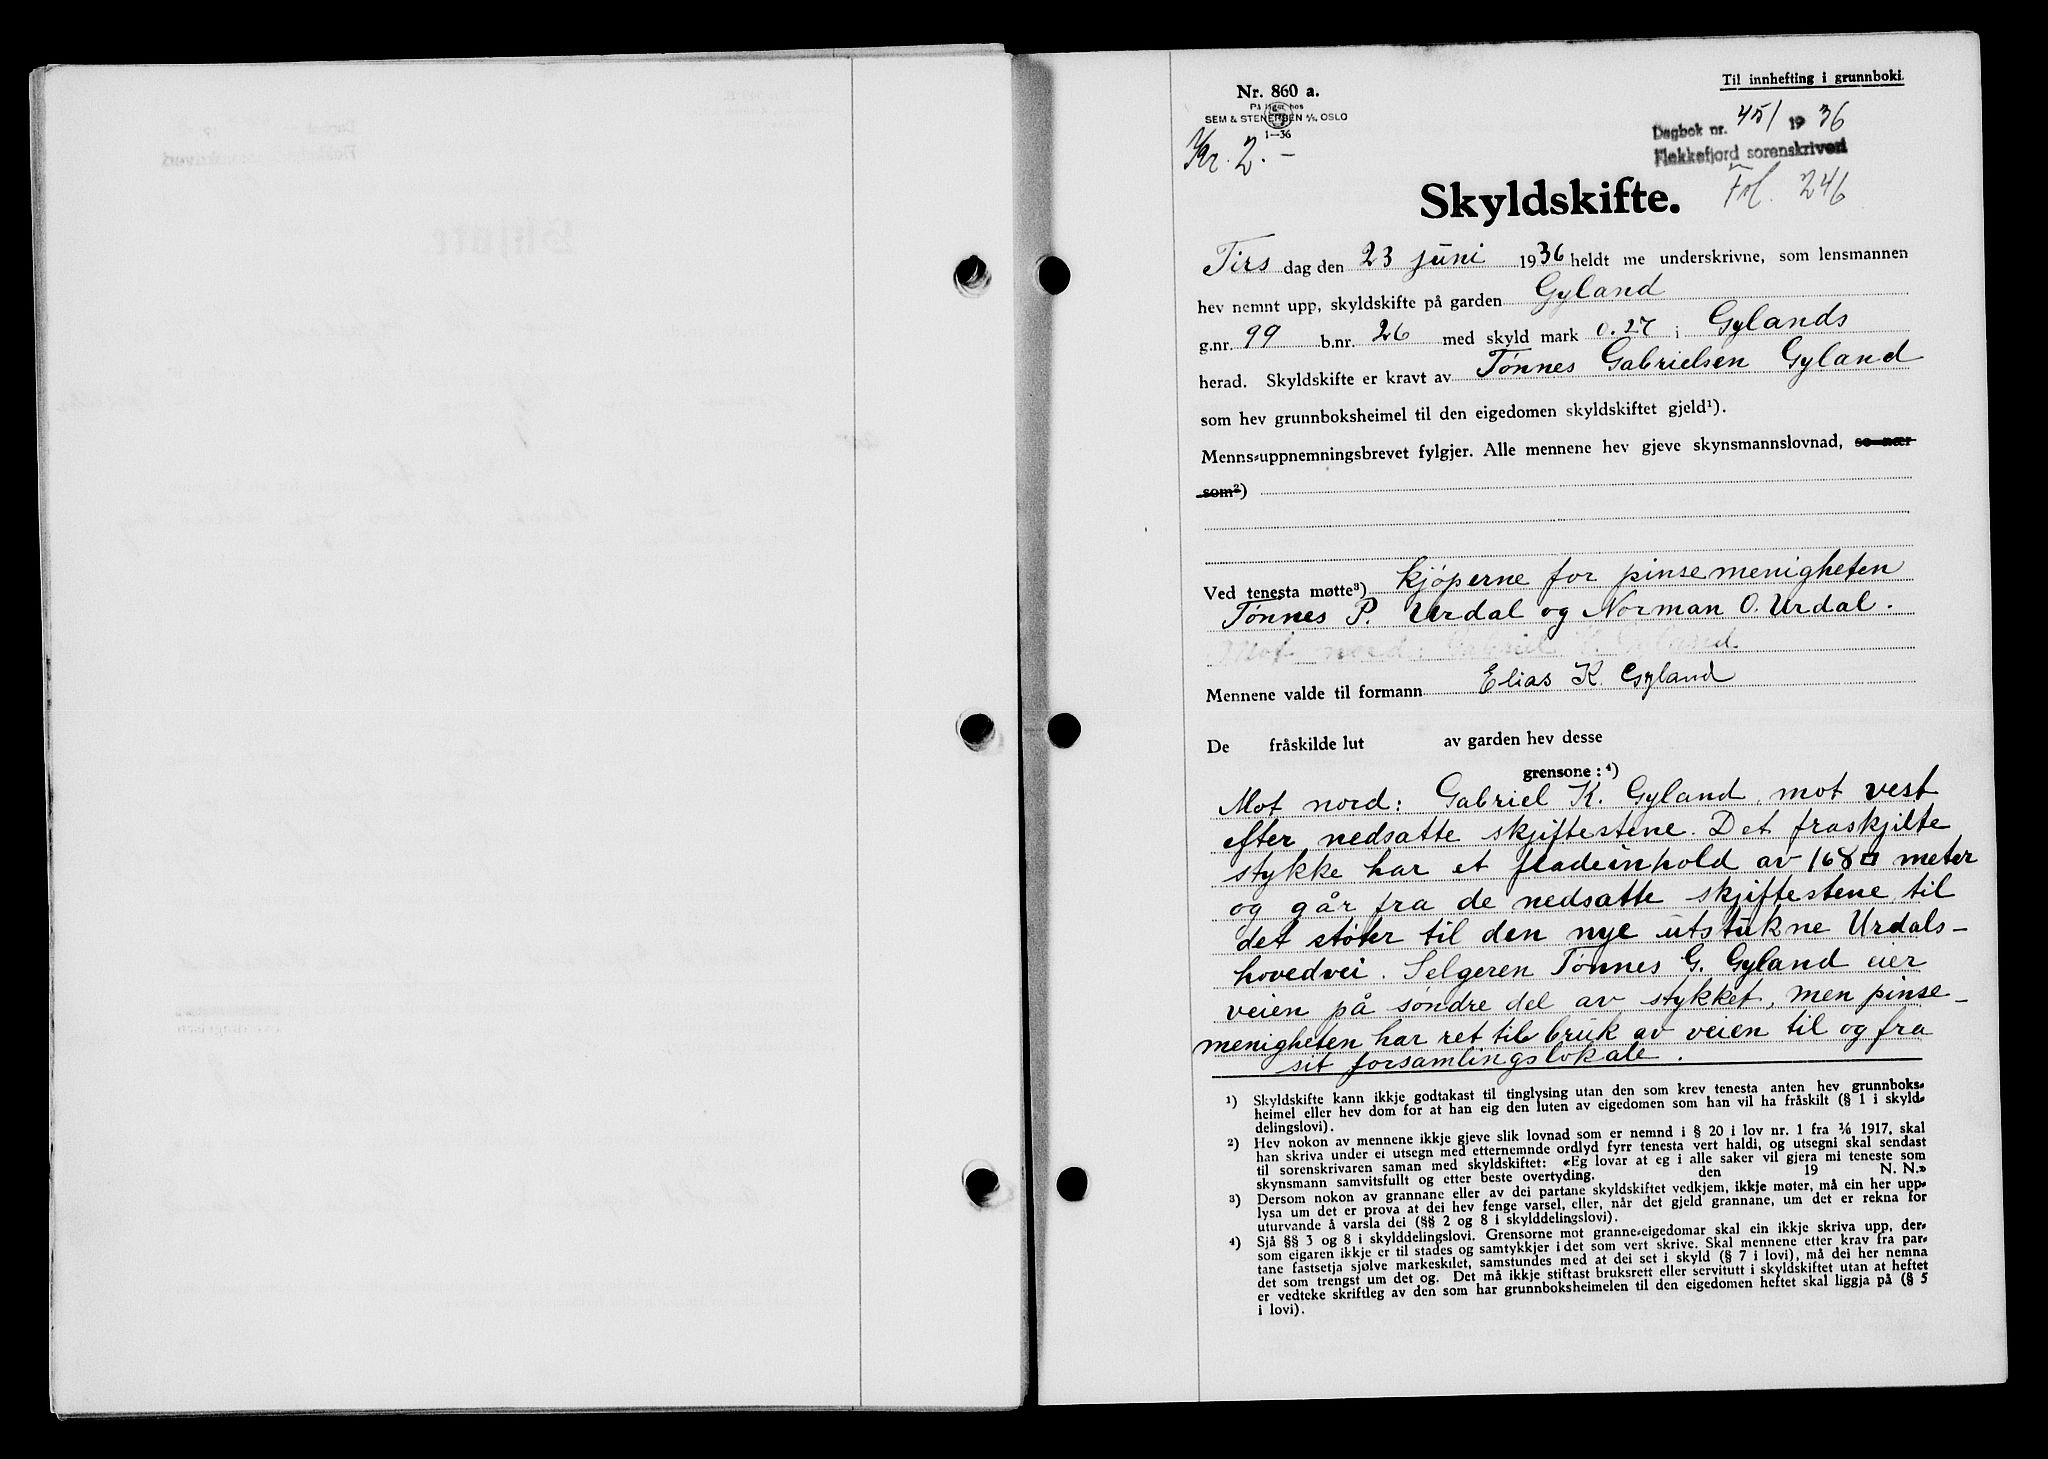 Til innhefting i grunnboki.
Nr. 860 a.
På lager hos
SEM & STENERSEN A/S, OSLO
1—36
Kr. 2.-
Dagbok nr. 451 1936
Flekkefjord sorenskriveri
Fol. 246
Skyldskifte.
Tirs dag den 23 juni 1936 heldt me underskrivne, som lensmannen
hev nemnt upp, skyldskifte på garden Gyland
g.nr. 99 b.nr. 26 med skyld mark 0.27 i Gylands
herad. Skyldskifte er kravt av Tønnes Gabrielsen Gyland
som hev grunnboksheimel til den eigedomen skyldskiftet gjeld¹).
Menns-uppnemningsbrevet fylgjer. Alle mennene hev gjeve skynsmannslovnad, so nær
som²)
Ved tenesta møtte³) kjøperne for pinsemenigheten
Tønnes P. Urdal og Norman O. Urdal.
Mot nord: Gabriel K. Gyland
Mennene valde til formann Elias K. Gyland
De fråskilde lut av garden hev desse
grensone:⁴)
Mot nord: Gabriel K. Gyland, mot vest
efter nedsatte skjiftestene. Det fraskjilte
stykke har et fladeinhold av 168 □ meter
og går fra de nedsatte skjiftestene, til
det støter til den nye utstukne Urdals-
hovedvei. Selgeren Tønnes G. Gyland eier
veien på søndre del av stykket, men pinse-
menigheten har ret til bruk av veien til og fra
sit forsamlingslokale.
¹) Skyldskifte kann ikkje godtakast til tinglysing utan den som krev tenesta anten hev grunnboks-
heimel eller hev dom for at han eig den luten av eigedomen som han vil ha fråskilt (§ 1 i skyld-
delingslovi).
²) Hev nokon av mennene ikkje gjeve slik lovnad som er nemnd i § 20 i lov nr. 1 fra 1/6 1917, skal
han skriva under ei utsegn med etternemnde ordlyd fyrr tenesta vert haldi, og utsegni skal sendast
til sorenskrivaren saman med skyldskiftet: «Eg lovar at eg i alle saker vil gjera mi teneste som
skynsmann samvitsfullt og etter beste overtyding. den 19 N. N.»
³) Dersom nokon av grannane eller av dei partane skyldskiftet vedkjem, ikkje møter, må ein her upp-
lysa um det er prova at dei hev fenge varsel, eller, når det gjeld grannane, um det er rekna for
uturvande å varsla dei (§§ 2 og 8 i skylddelingslovi).
⁴) Sjå §§ 3 og 8 i skylddelingslovi. Grensorne mot granne-eigedomar skal ein ikkje skriva upp, der-
som eigaren ikkje er til stades og samtykkjer i det som vert skrive. Skal mennene etter krav fra par-
tane fastsetja sjølve markeskilet, samstundes med at dei set i skyld (§ 7 i lovi), må dei her nemna
det som trengst um det og. Det må ikkje stiftast bruksrett eller servitutt i skyldskiftet utan at heftet
er vedteke skriftleg av den som har grunnboksheimelen til den eigedomen heftet skal liggja på (§ 5
i lovi).